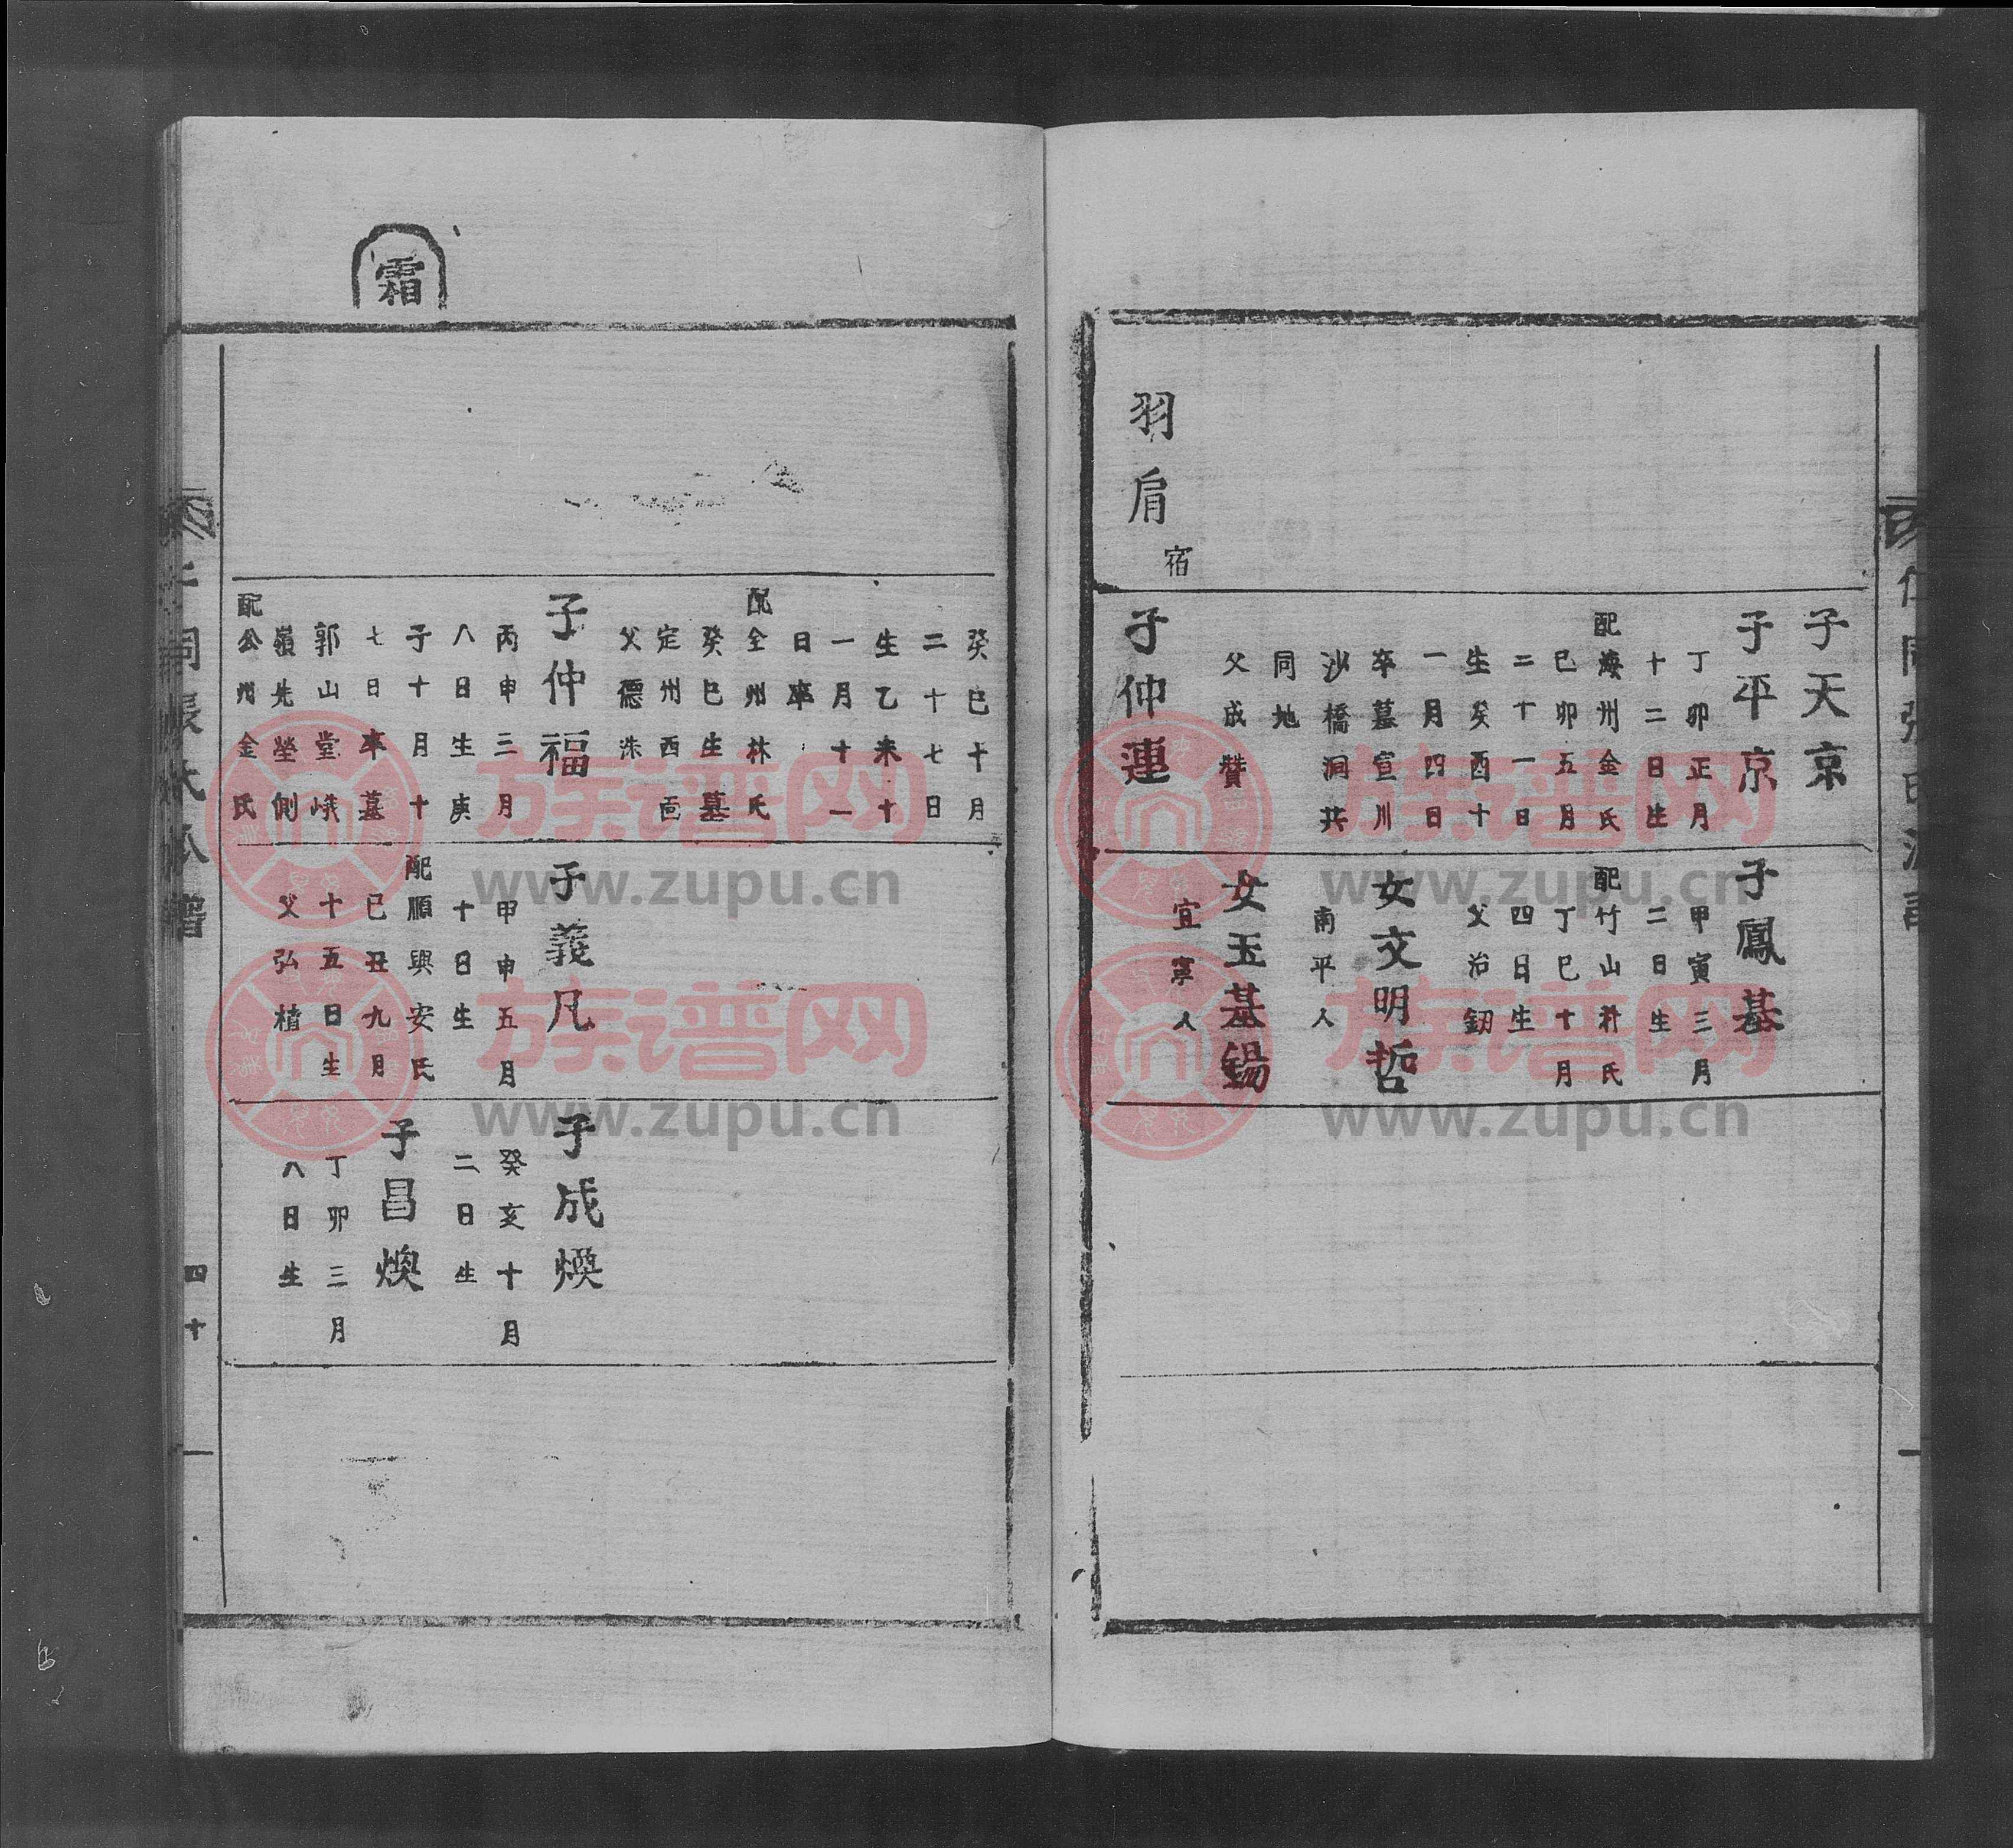 羽肩
宿
子天京
子平京
丁卯正月
十二日生
配海州金氏
己卯五月
二十一日
生癸酉十
一月四日
卒墓宣川
沙橋洞共
同地
父成贊
子仲連
子鳳基
甲寅三月
二日生
配竹山朴氏
丁巳十月
四日生
父治釰
女文明哲
南平人
女玉基錫
宜寧人
霜
癸巳十月
二十七日
生乙未十
一月十一
日卒
配全州林氏
癸巳生墓
定州西面
父德洙
子仲福
丙申三月
八日生庚
子十月十
七日卒墓
郭山堂峨
嶺先塋側
配公州金氏
子義凡
甲申五月
十日生
配順興安氏
己丑九月
十五日生
父弘植
子成煥
癸亥十月
二日生
子昌煥
丁卯三月
八日生
仁同張氏派譜
四十
族谱网
www.zupu.cn
族谱网
www.zupu.cn
族谱网
www.zupu.cn
族谱网
www.zupu.cn